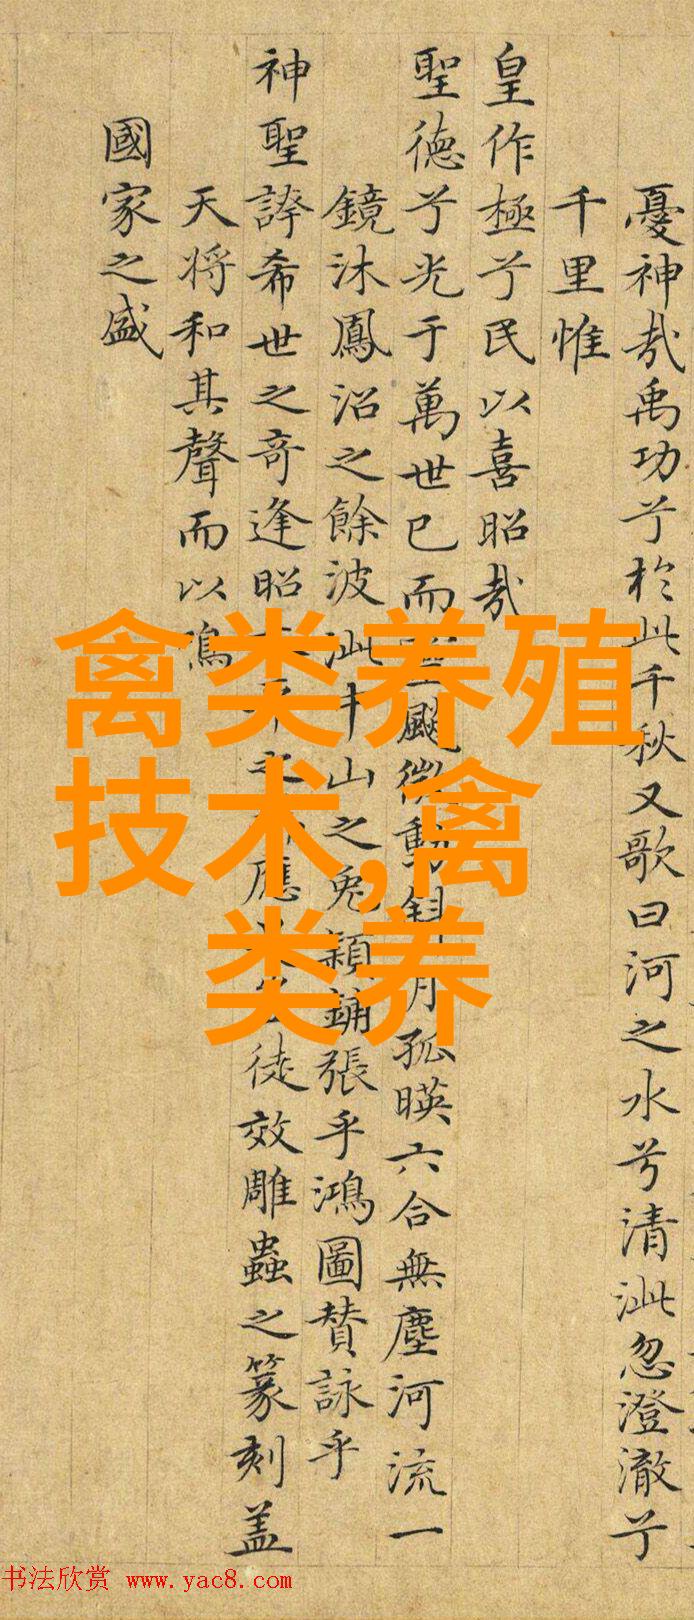 憂神哉禹功兮於此千秋又歌曰河之水兮清泚忽澄澈兮
千里惟
皇作極兮民以喜昭哉
聖德兮光于萬世已而颸微動斜月孤暎六合無塵河流一
鏡沐鳳沼之餘波泚中山之兔穎鋪張乎鴻圖贊詠乎
神聖誇希世之奇逢昭應徒效雕蟲之篆刻盖
天将和其聲而以鳴
國家之盛
禽类养殖
技术,禽
类养
书法欣赏 www.yac8.com